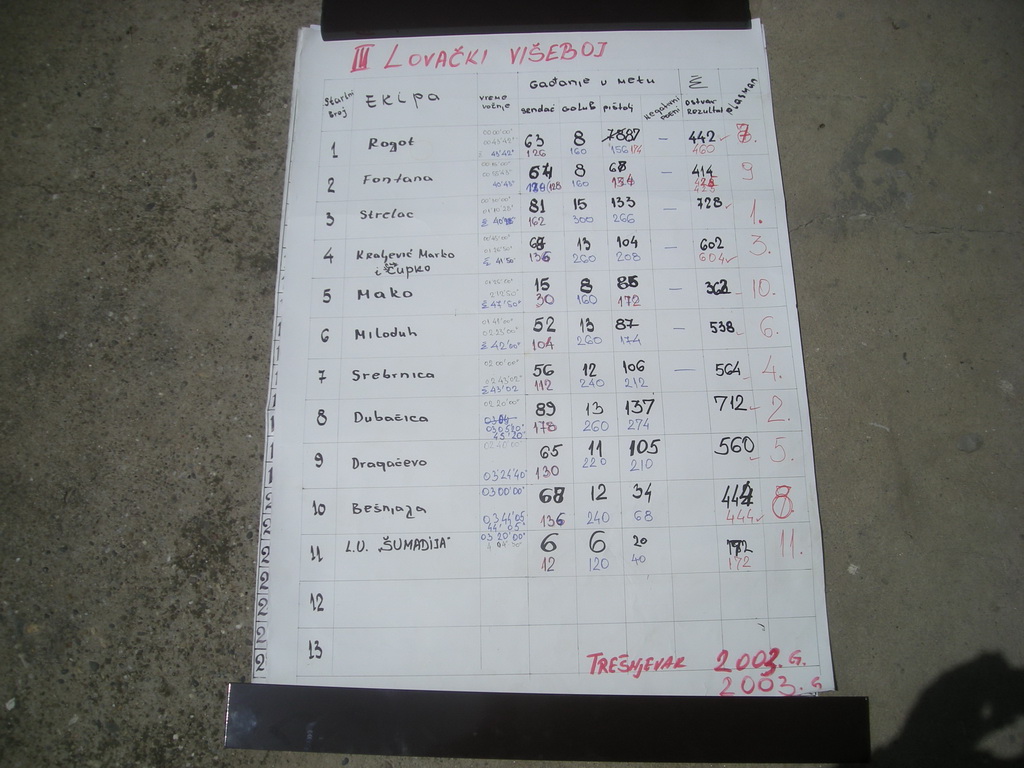 III LOVAČKI VIŠEBOJ
Startni Broj EKIPA vreme vožnje Gađanje u metu Σ plasman
sendač Golub pištolj Negativni poeni Ostvar. Rezultat
1 Rogot 63 8 87 — 442
126 160 174 460
2 Fontana 64 8 — 414 9
160 134
3 Strelac 81 15 133 — 728 1.
162 300 266
4 Kraljević Marko i Čupko 13 104 — 602 3.
136 260 208 604
5 Mako 15 8 86 — 362 10.
Σ 47'50" 30 160 172
6 Miloduh 52 13 87 — 538 6.
Σ 42'00" 104 260 174
7 Srebrnica 02 00'00" 56 12 106 — 564 4.
02 43'02" Σ 43'02 112 240 212
8 Dubačica 02 20'00" 89 13 137 712 2.
03 05'20" 45'20" 178 260 274
9 Dragačevo 02 40'00" 65 11 105 560 5.
03 24'40" 130 220 210
10 Bešnjaja 03 00'00" 68 12 34 444 8
03 44'05 44'05" 136 240 68 444
11 L.U. „ŠUMADIJA" 03 20'00" 6 6 20 172 11.
12 120 40 172
12
13
TREŠNJEVAK 2003. G.
2003. G
1
1
1
1
1
1
1
2
2
2
2
2
2
2
2